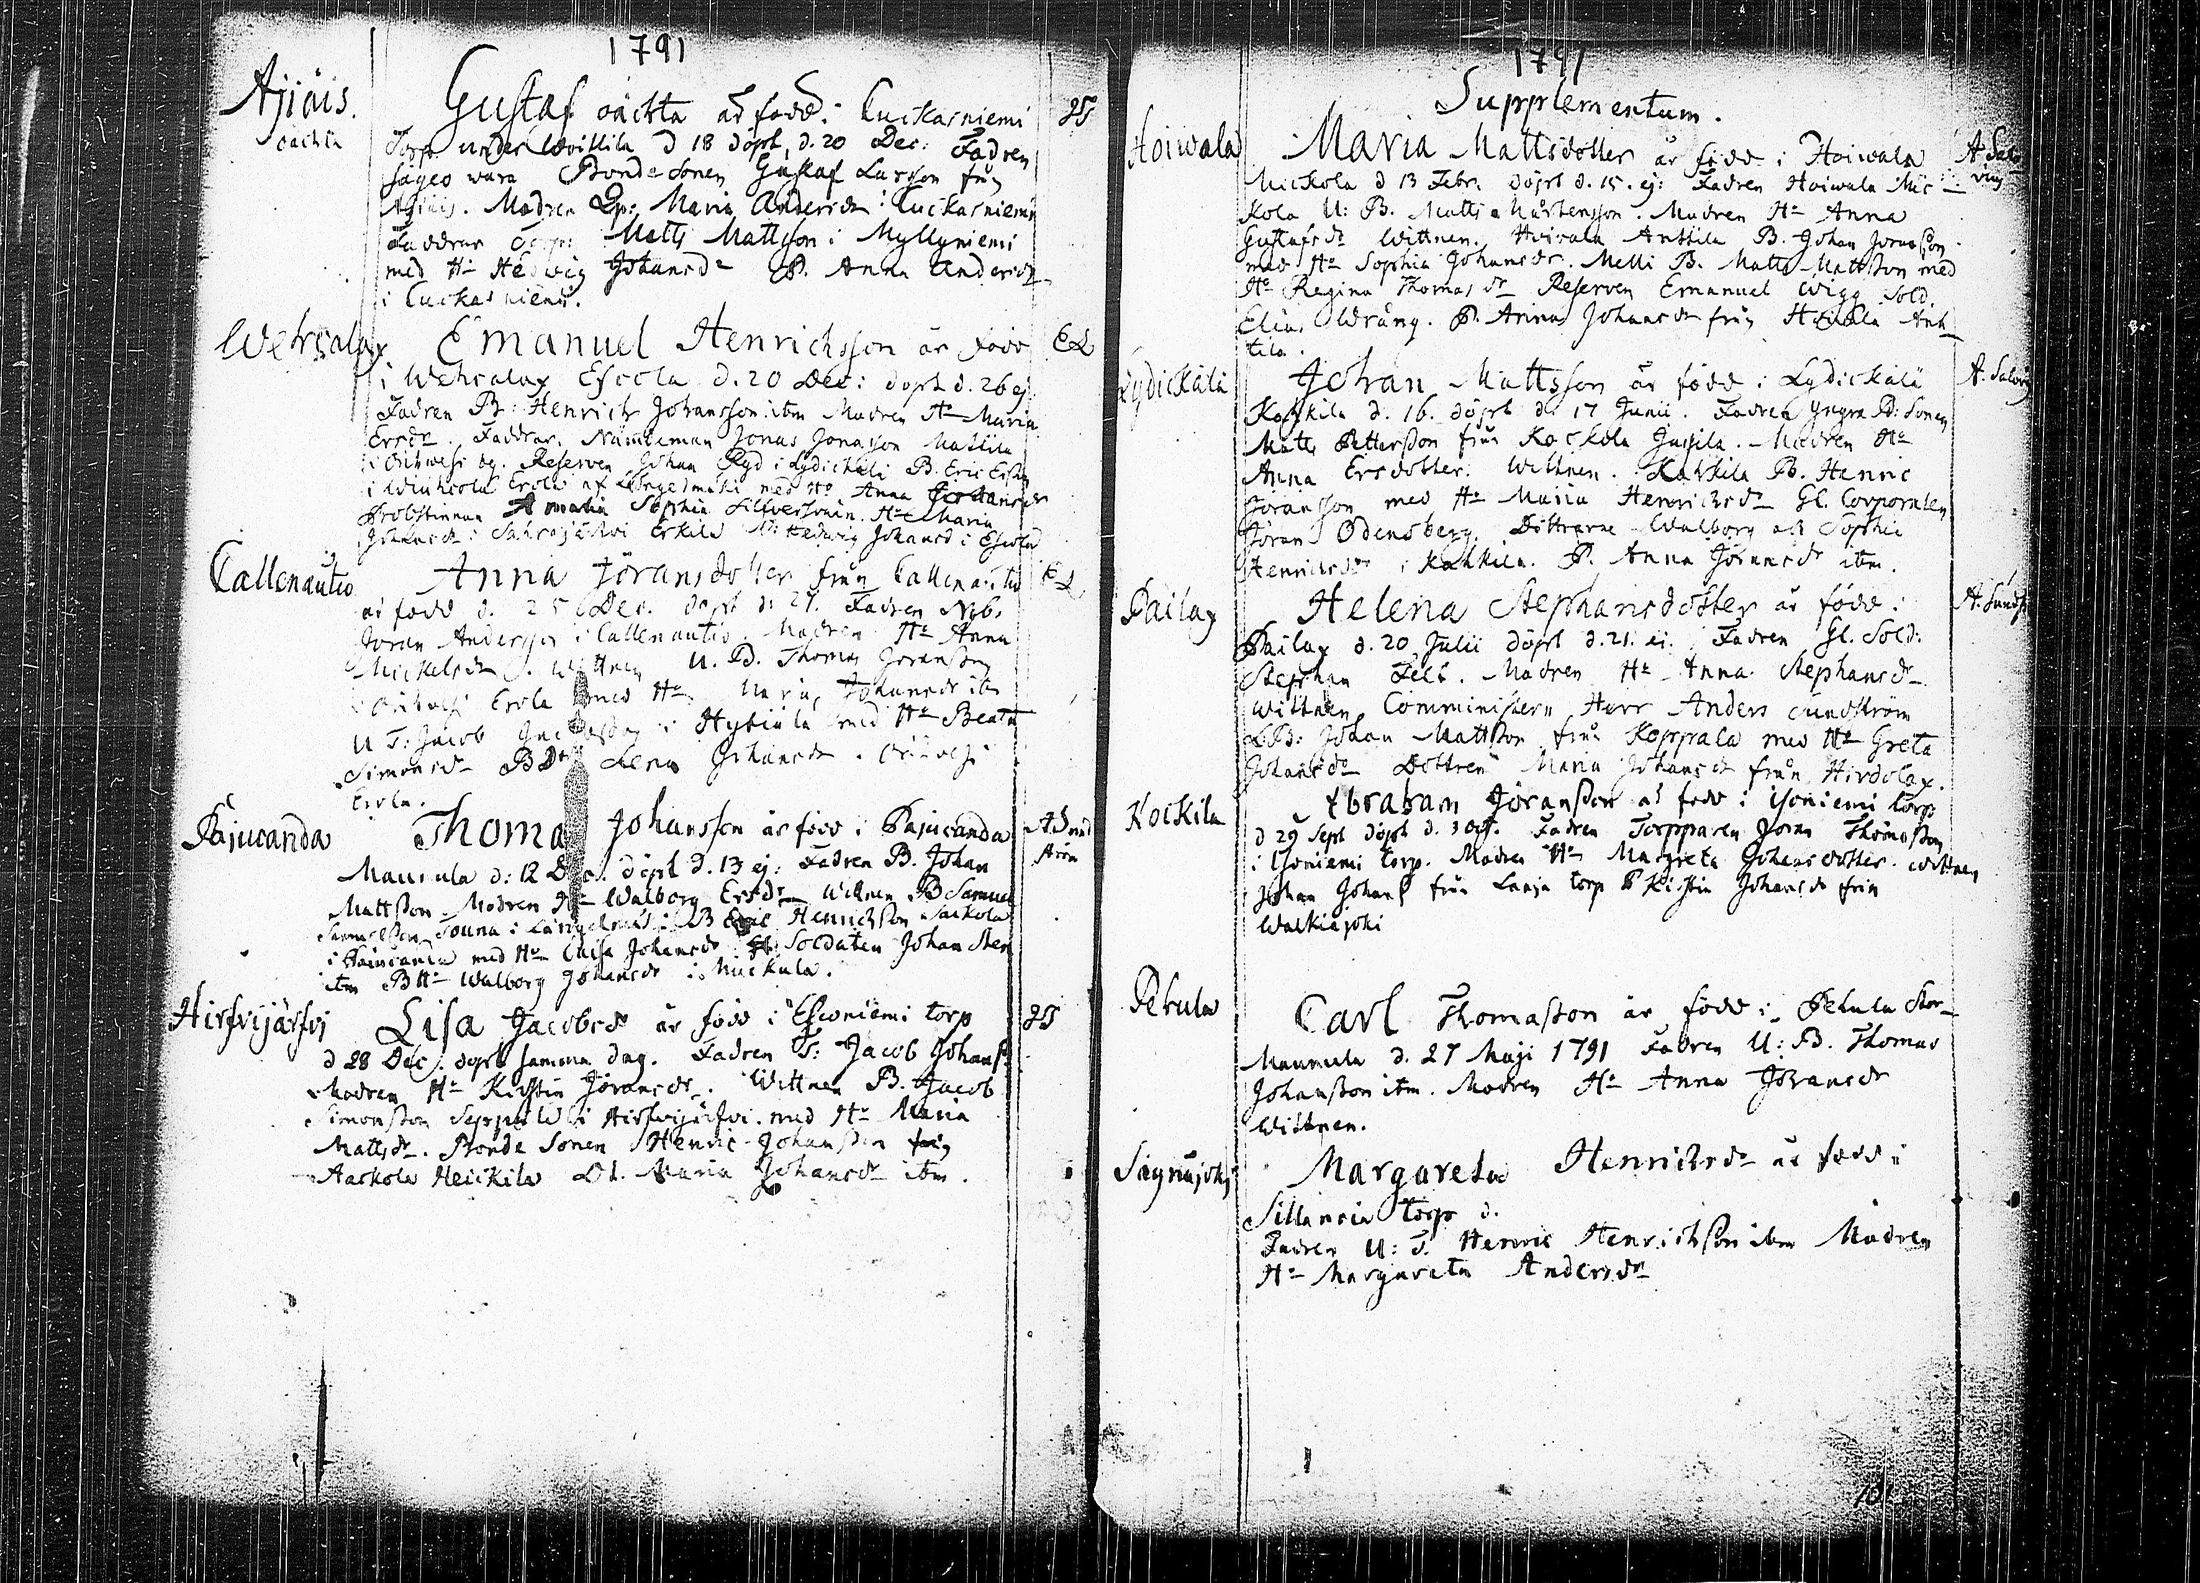 1791
Ajiäis.
oächta
Gustaf oächta är född i Luckasniemi
Torp under Woittila d 18 döpt d. 20 Dec: Fadren
säges wara Bonde Sonen Gustaf Larsson från
Ajiäis. Modren Maria Andersdr i Luckasniemi
Faddrar Torp: Matts Mattsson i Myllyniemi
med Hu Hedwig Johansdr P. Anna Andersdr
i Luckasniemi.
JS
Wehcalax
Emanuel Henrichsson är född
i Wehcalax Escola d. 20 Dec: döpt d. 26 ej
Fadren B: Henrich Johansson itm Modren Hu Maria
Ersdr. Faddrar. Nämdeman Jonas Jonasson Mattila
i Oritwesi by. Reserven Johan Ryd i Lydickäli B. Eric Ersson
med Hu Anna Johansdr
Probstinnan Amalia Sophia Silfversvan. Hu Maria
Johansdr i Sahrajärwi Erkila Hedwig Johansd i Escola
EL
Callenautio
Anna Jöransdotter från Callenautio
är född d. 25 Dec. döpt d: 27. Fadren Nyb.
Jöran Andersson i Callenautio. Modren Hu Anna
Mickelsdr. Wittnen U. B. Thomas Jöransson
i Oritwesi Erola med Hu Maria Johansdr itm
U T: Jacob i Hytiälä med Hu Beata
Simonsdr BDr Lena Johansdr. Oritwesi
Erola.
EL
Pajucanda
Thomas Johansson är född i Pajucanda
Maunula d: 12 Dec. döpt d. 13 ej: Fadren B. Johan
Mattsson. Modren Hu Walborg Ersdr Wittnen B Samuel
Samuelsson Souna i Längelmäki: B Eric Henrichsson Sackola
i Pajucanda med Hu Caisa Johansdr. Soldaten Johan Sten
itm B Hu Walborg Johansdr i Mickula.
Hirfvijärfvi
Lisa Jacobsdr är född i Esconiemi torp
d 28 Dec: döpt samma dag. Fadren T: Jacob Johans:
Modren Hu Kirstin Jöransdr. Wittnen B. Jacob
Simonsson Seppälä i Hirfvijärfvi. med Hu Maria
Mattsdr. Bonde Sonen Henric Johansson från
Aackola Heickila Dt. Maria Johansdr itm.
JS
1791
Supplementum.
Hoiwala
Maria Mattsdotter är född i Hoiwala
Mickola d 13 Febr. döpt d. 15. ej: Fadren Hoiwala Mic-
kola U: B. Matts Mårtensson. Modren Hu Anna
Gustafsdr Wittnen. Hoiwala Anttila B. Johan Jöransson
med Hu Sophia Johansdr. Melli B. Matts Mattsson med
Hu Regina Thomasdr Reserven Emanuel Wigg Sold.
Elias Wrång. P. Anna Johansdr från Hoiwala Ant-
tila.
Lydickälä
Johan Mattsson är född i Lydickälä
Kackila d. 16. döpt d: 17 Junii. Fadren yngre B: Sonen
Matts Pettersson från Kockola Jussila. Modren Hu
Anna Ersdotter. Wittnen. Kackila B. Henric
Jöransson med Hu Maria Henrichsdr Gl. Corporalen
Jöran Odensberg. Döttrarne Walborg och Sophia
Henrichsdr i Kackila. P. Anna Jöransdr itm.
Pailax
Helena Stephansdotter är född i
Pailax d. 20 Julii döpt d. 21. ej. Fadren Gl. Sold:
Stephan Felt. Modren Hu Anna Stephansdr
Wittnen Comministern Herr Anders Sundström
B: Johan Mattsson från Koppala med Hu Greta
Johansdr Dottren Maria Johansdr från Hirdolax.
Kockila
Abraham Jöransson är född i Isoniemi torp
d 29 Sept döpt d. 3 Oct. Fadren Torpparen Jöran Thomasson
i Isoniemi torp. Modren Hu Margreta Johansdotter. Wittnen
Johan Johans från Laaja torp P Kirstin Johansdr från
Walkiajoki
Pekula
Carl Thomasson är född i Pekula Stor-
Maunula d. 27 Maji 1791 Fadren U: B. Thomas
Johansson itm. Modren Hu Anna Jöransdr
Wittnen.
Säynäjoki
Margareta Henrichsdr är född i
Sillanoia torp d.
Fadren U: T. Henric Henrichsson itm Modren
Hu Margareta Andersdr